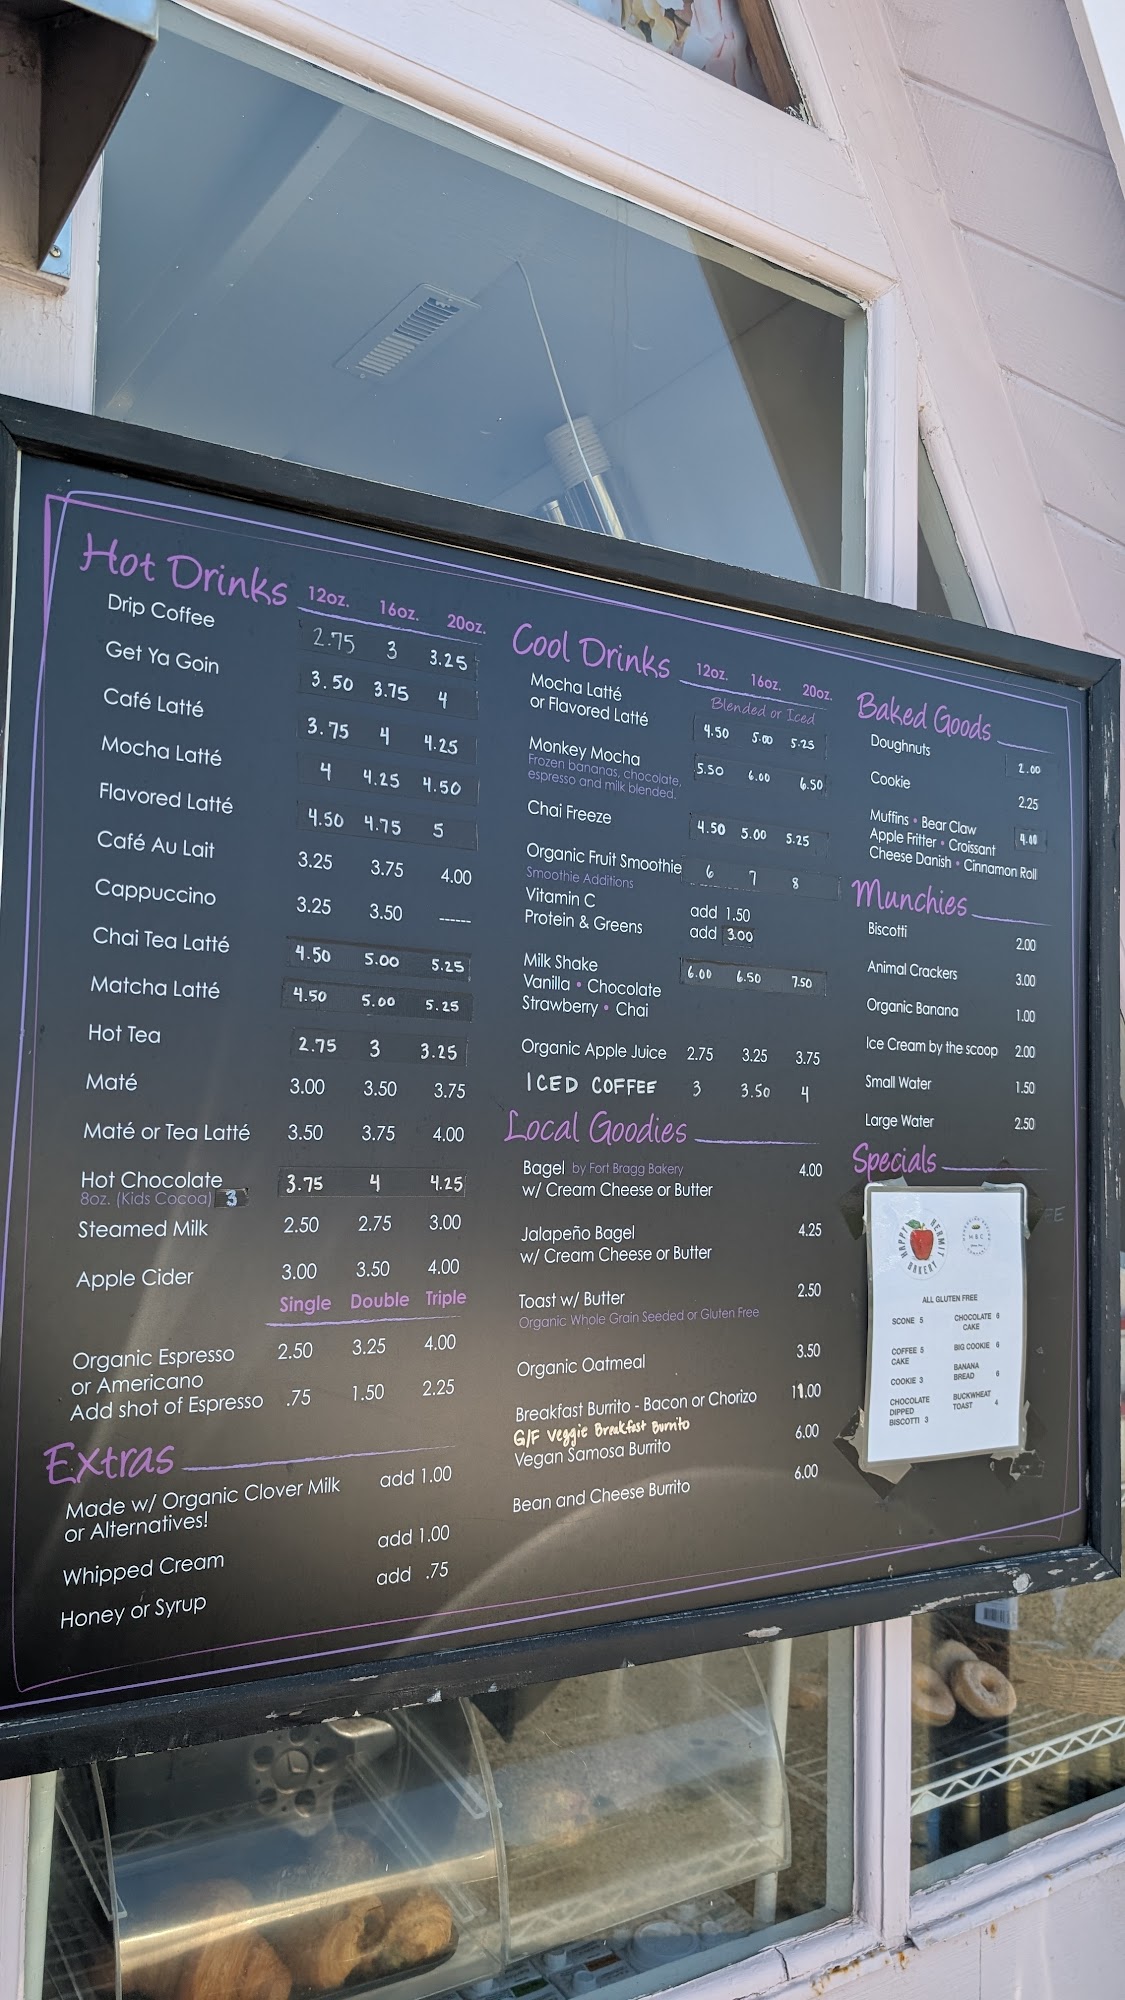 Hot Drinks 12oz. 16oz. 20oz.
Drip Coffee 2.75 3 3.25
Get Ya Goin 3.50 3.75 4
Café Latté 3.75 4 4.25
Mocha Latté 4 4.25 4.50
Flavored Latté 4.50 4.75 5
Café Au Lait 3.25 3.75 4.00
Cappuccino 3.25 3.50 -----
Chai Tea Latté 4.50 5.00 5.25
Matcha Latté 4.50 5.00 5.25
Hot Tea 2.75 3 3.25
Maté 3.00 3.50 3.75
Maté or Tea Latté 3.50 3.75 4.00
Hot Chocolate 3.75 4 4.25
8oz. (Kids Cocoa) 3
Steamed Milk 2.50 2.75 3.00
Apple Cider 3.00 3.50 4.00
Single Double Triple
Organic Espresso 2.50 3.25 4.00
or Americano
Add shot of Espresso .75 1.50 2.25
Extras
Made w/ Organic Clover Milk add 1.00
or Alternatives!
Whipped Cream add 1.00
Honey or Syrup add .75
Cool Drinks 12oz. 16oz. 20oz.
Blended or Iced
Mocha Latté
or Flavored Latté 4.50 5.00 5.25
Monkey Mocha 5.50 6.00 6.50
Frozen bananas, chocolate,
espresso and milk blended.
Chai Freeze 4.50 5.00 5.25
Organic Fruit Smoothie 6 7 8
Smoothie Additions
Vitamin C add 1.50
Protein & Greens add 3.00
Milk Shake 6.00 6.50 7.50
Vanilla • Chocolate
Strawberry • Chai
Organic Apple Juice 2.75 3.25 3.75
ICED COFFEE 3 3.50 4
Local Goodies
Bagel by Fort Bragg Bakery 4.00
w/ Cream Cheese or Butter
Jalapeño Bagel 4.25
w/ Cream Cheese or Butter
Toast w/ Butter 2.50
Organic Whole Grain Seeded or Gluten Free
Organic Oatmeal 3.50
Breakfast Burrito - Bacon or Chorizo 11.00
G/F Veggie Breakfast Burrito
Vegan Samosa Burrito 6.00
Bean and Cheese Burrito 6.00
Baked Goods
Doughnuts 2.00
Cookie 2.25
Muffins • Bear Claw
Apple Fritter • Croissant 4.00
Cheese Danish • Cinnamon Roll
Munchies
Biscotti 2.00
Animal Crackers 3.00
Organic Banana 1.00
Ice Cream by the scoop 2.00
Small Water 1.50
Large Water 2.50
Specials
HAPPY HERMIT BAKERY
ALL GLUTEN FREE
SCONE 5
COFFEE 5
CAKE
COOKIE 3
CHOCOLATE
DIPPED
BISCOTTI 3
CHOCOLATE 6
CAKE
BIG COOKIE 6
BANANA
BREAD 6
BUCKWHEAT
TOAST 4